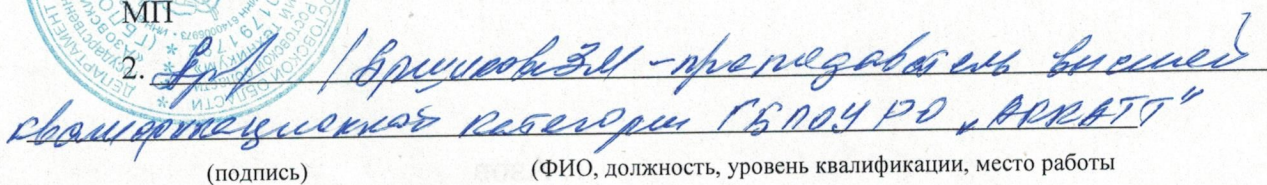 МП
2. / преподаватель высшей
квалификационной категории ГБПОУ РО „АККАТТ"
(подпись) (ФИО, должность, уровень квалификации, место работы